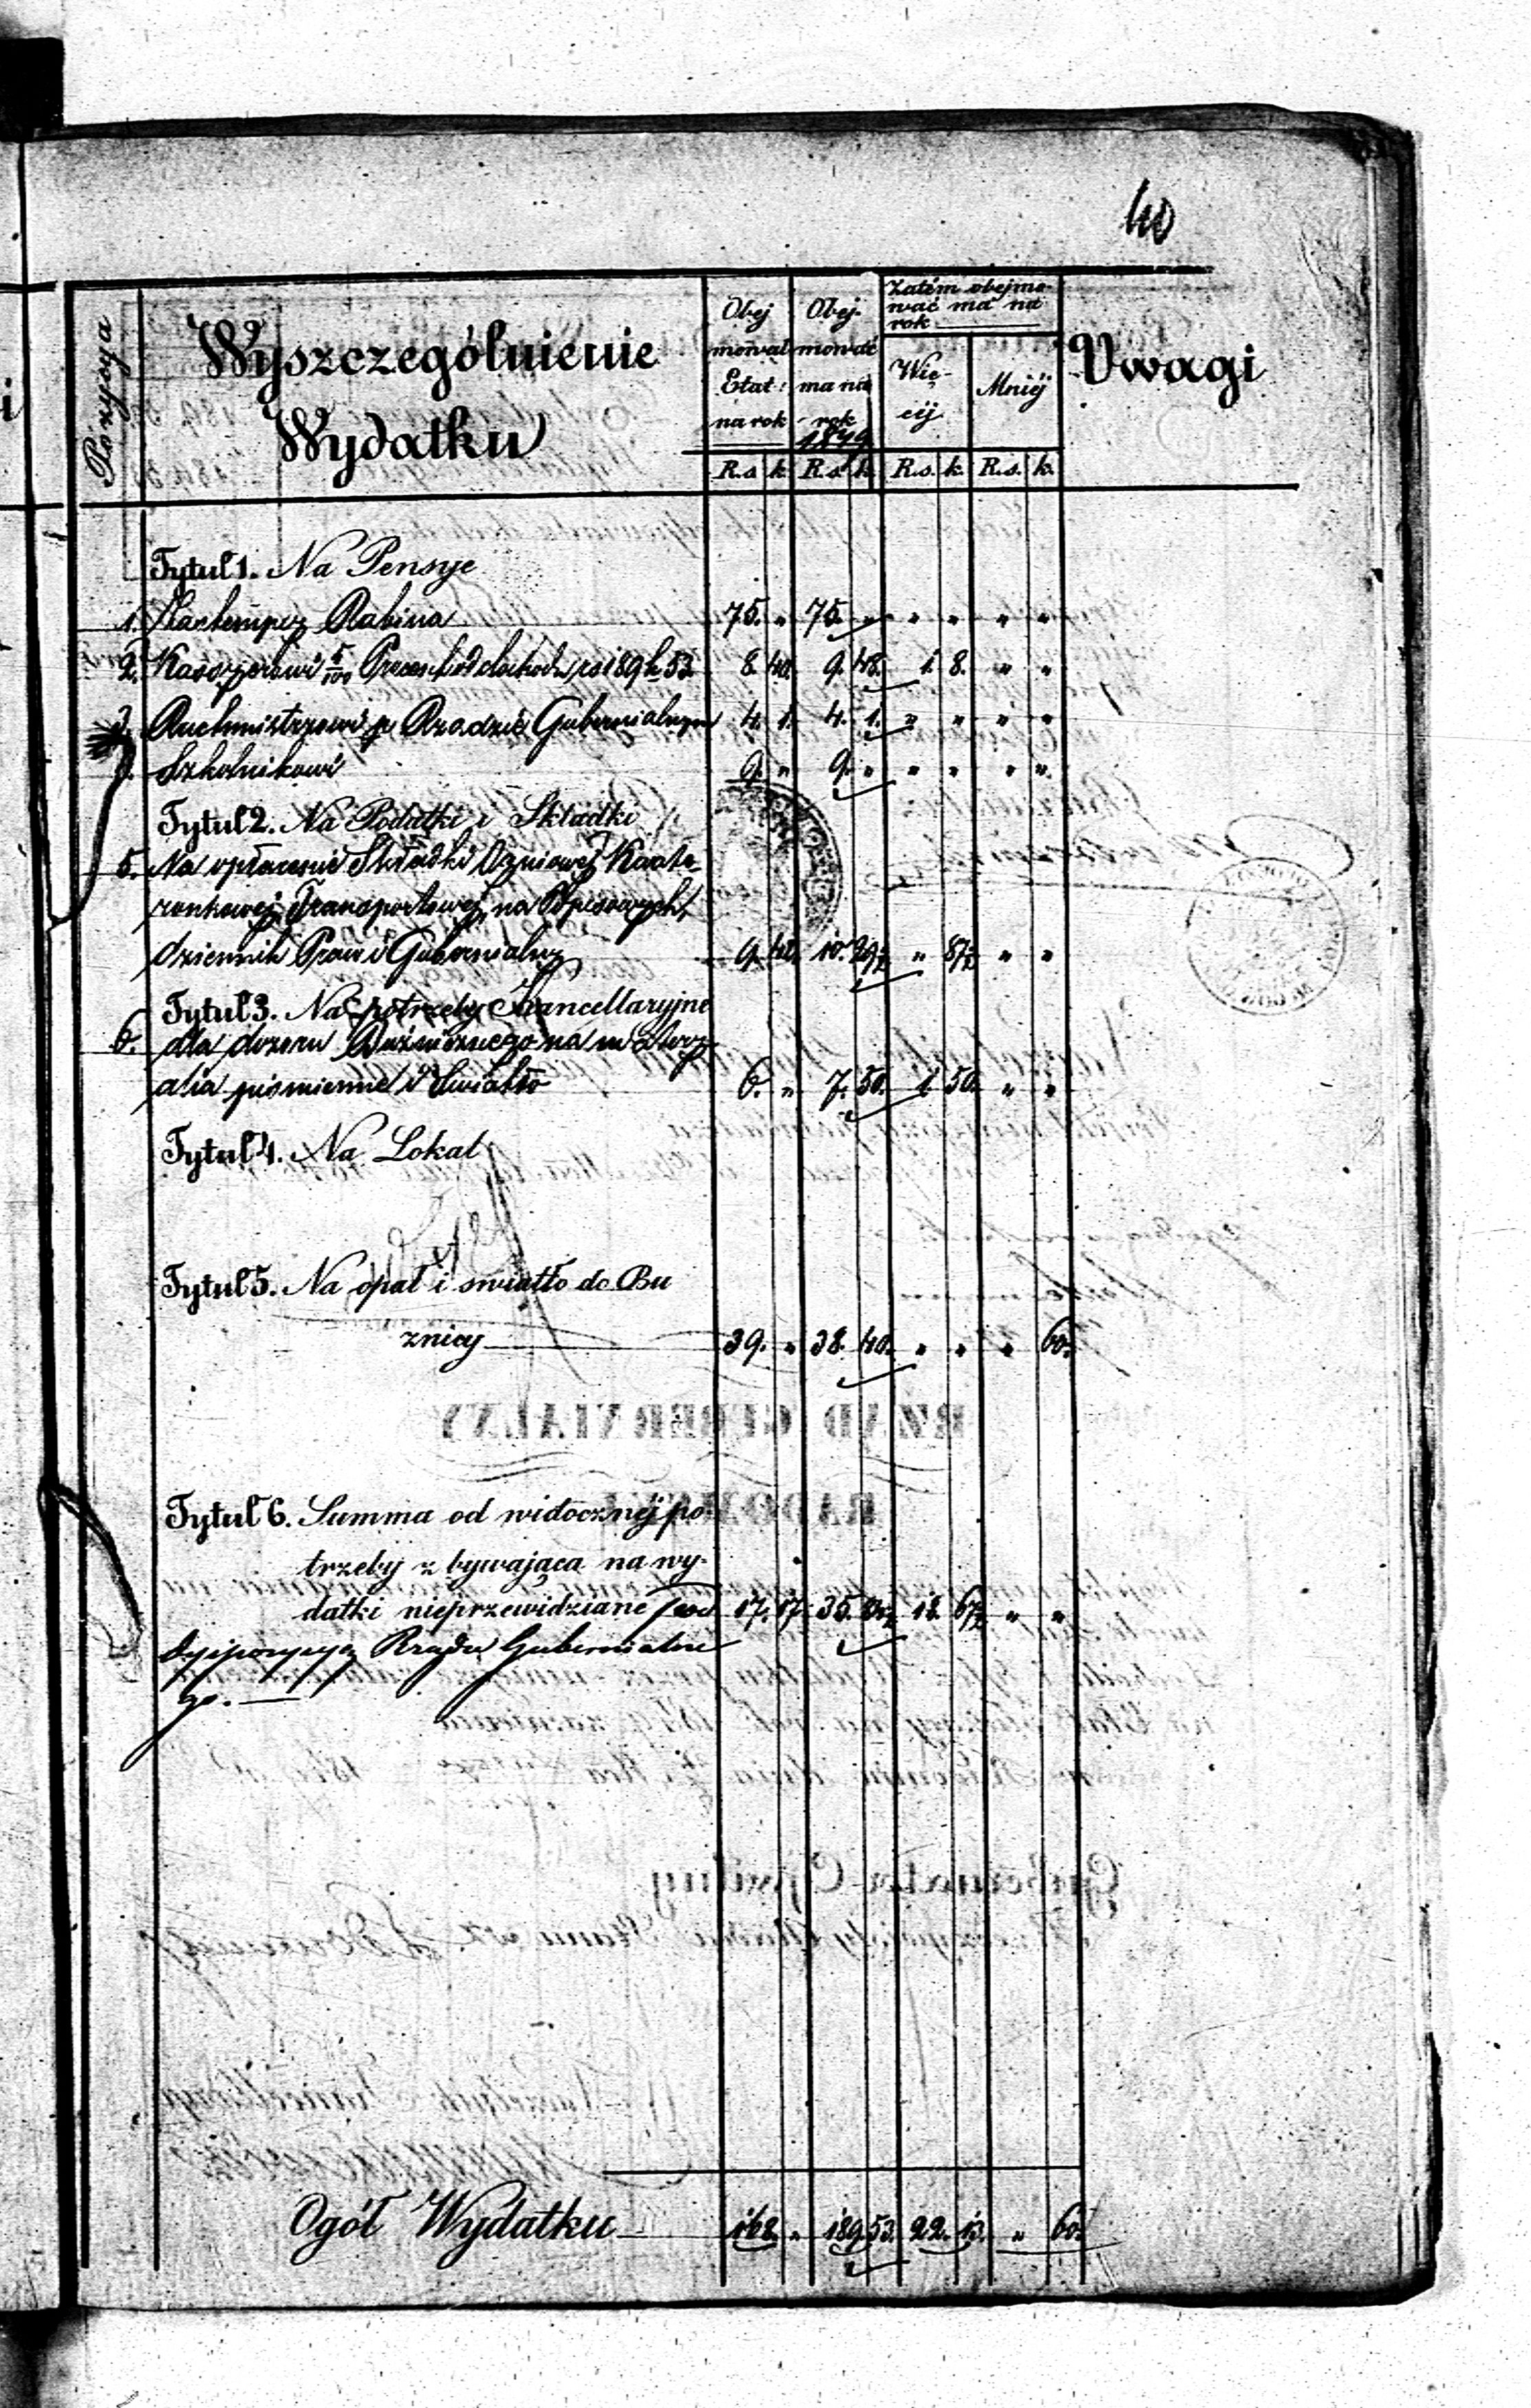 40
Pozycya
Wyszczególnienie
Wydatku
Obej
mował
Etat
na rok
Obej-
mować
ma na
rok
1849
Zatém obejmo-
wać ma na
rok
Wię-
céj
Mniéj
Uwagi
R.s. k. R.s. k. R.s. k. R.s. k.
Tytuł 1. Na Pensye
1. Rabina 75. " 75. " " " " "
2. Kassyerowi 5/100 od dochodu rs 189 k 53. 8. 40. 9. 48. 1. 8. " "
3. Rachmistrzowi w Rządzie Gubernialnym 4. 1. 4. 1. " " " "
4. Szkolnikowi 9. " 9. " " " " "
Tytuł 2. Na Podatki i Składki
5. Na opłacenie Składki Ogniowej, Kwate-
runkowej, Transportowej, na Popisowych,
dziennik Praw i Gubernialny 9. 42. 10. 29½ " 87½ " "
Tytuł 3. Na potrzeby Kancellaryjne
6. dla dozoru Bużnicznego na matery-
alia piśmienne i Światło 6. " 7. 50. 1. 50. " "
Tytuł 4. Na Lokal
Tytuł 5. Na opał i swiatło do Bu
znicy 39. " 38. 40. " " " 60.
Tytuł 6. Summa od widocznéj po-
trzeby zbywająca na wy-
datki nieprzewidziane pod 17. 17. 35. 84½ 18. 67½ " "
dyspozycyą Rządu Gubernialne
go.
Ogół Wydatku 168. " 189. 53. 22. 13. " 60.